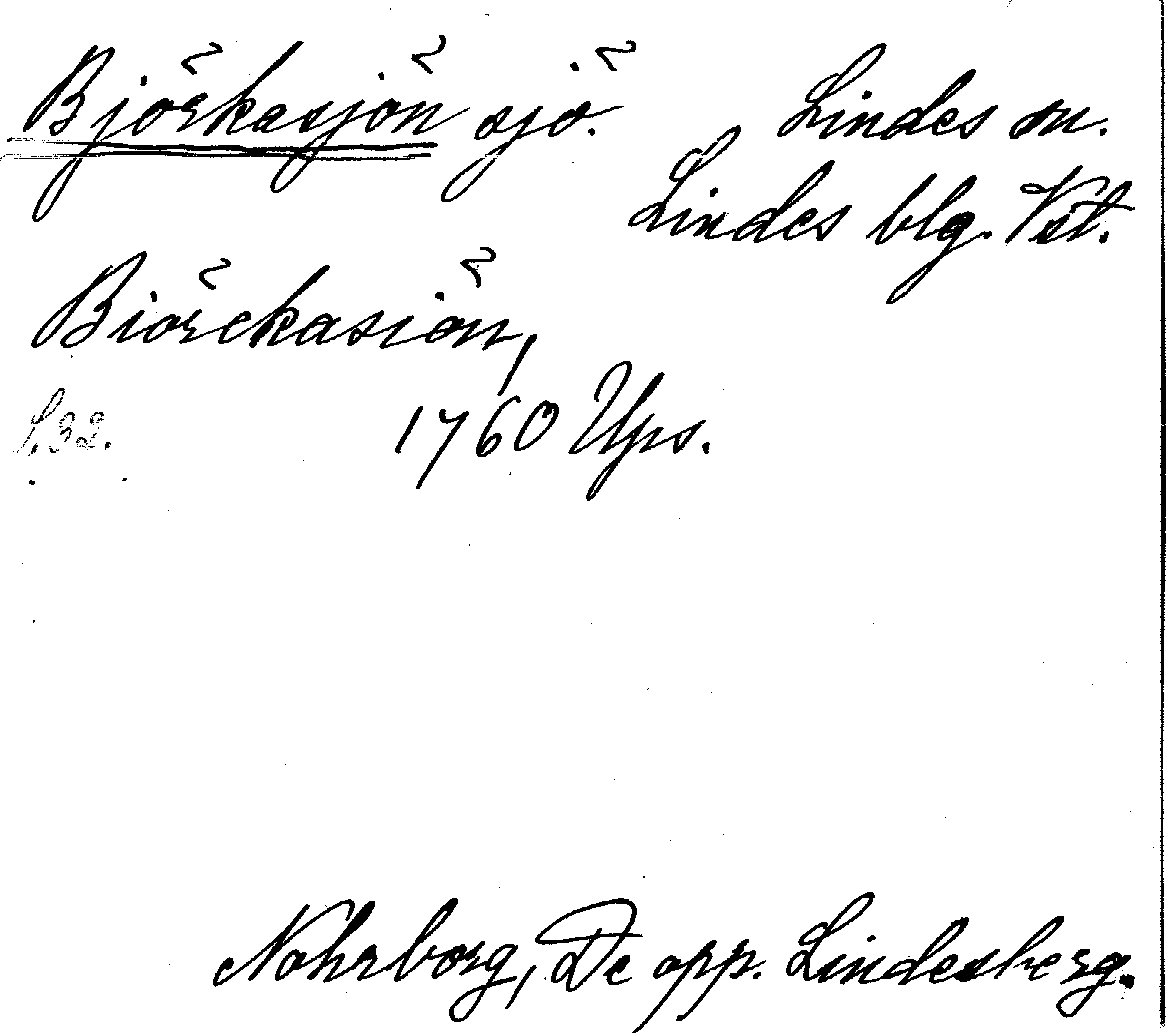 Björkasjön sjö. Lindes sn.
Lindes blg. Vst.
Biörckasiön,
s. 32. 1760 Ups.
Nohrborg, De opp. Lindesberg.